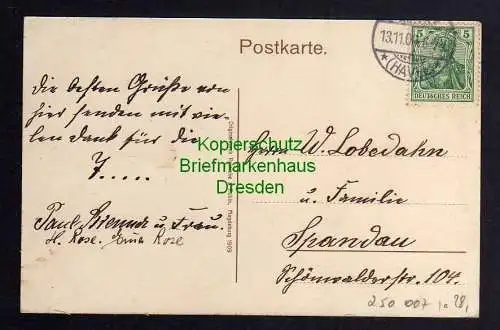 Postkarte.
13.11.0
(HAVEL)
5 5
DEUTSCHES REICH
die besten Grüße von
hier senden mit vie-
len Dank für die
7.....
Paul u Frau.
H. Rose. Erna Rose
Magdeburg 1909
Herrn W. Lobedahn
u. Familie
Spandau
Schönwalderstr. 104.
250 007
Kopierschutz
Briefmarkenhaus
Dresden